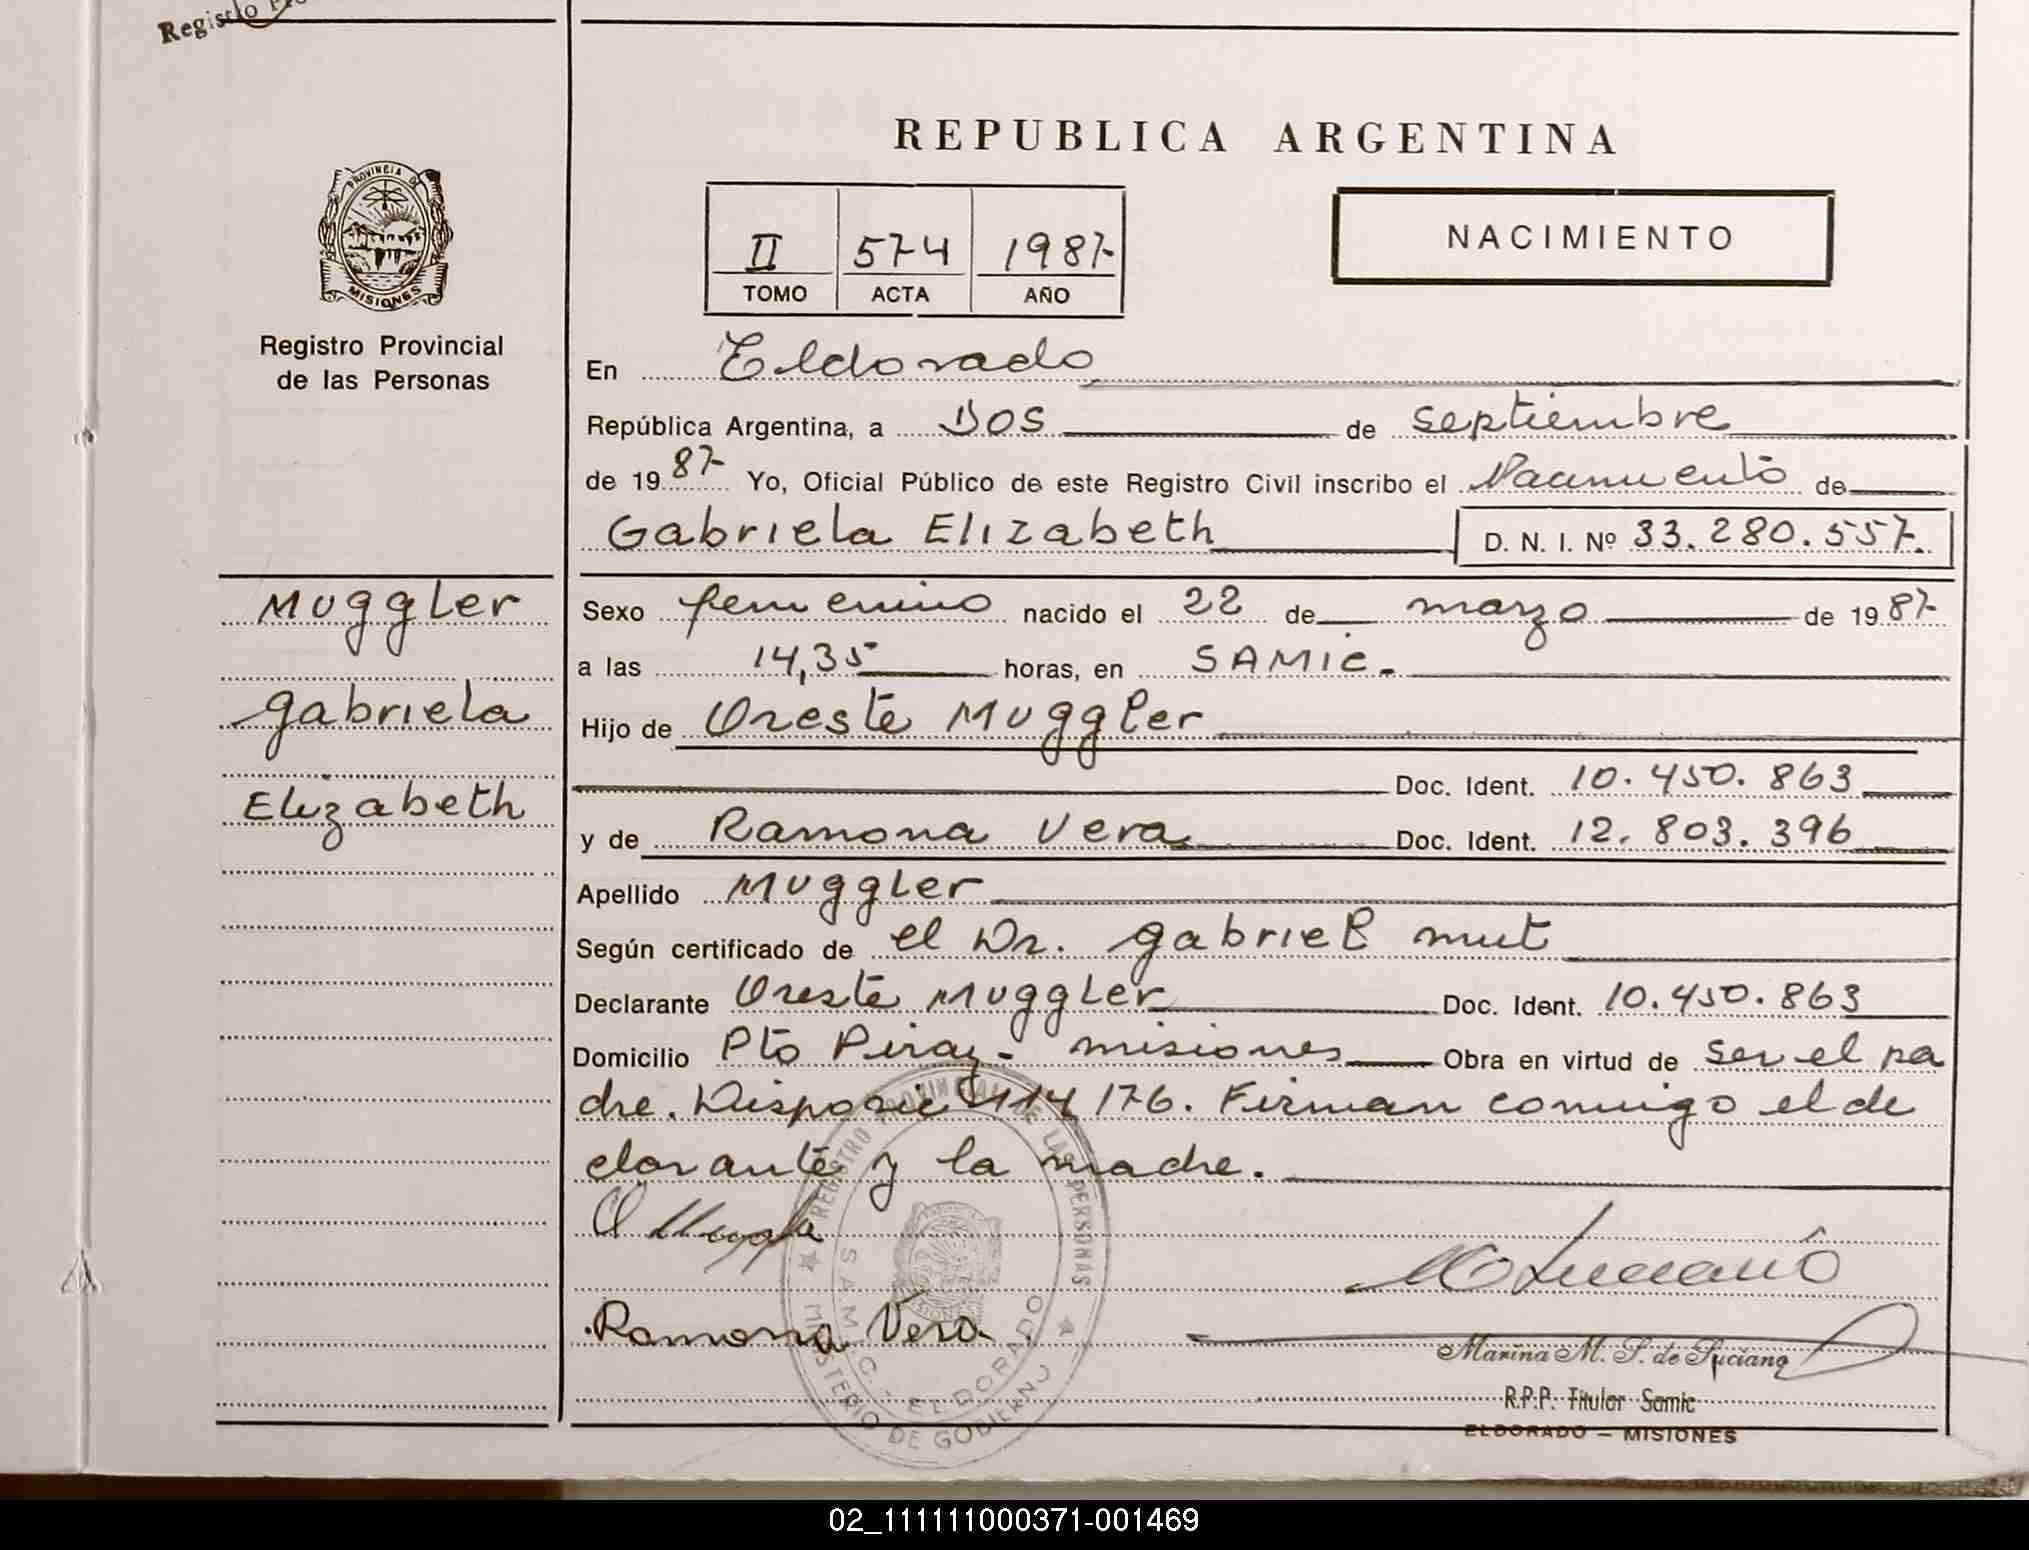 Registro
REPUBLICA ARGENTINA
PROVINCIA DE
MISIONES
Registro Provincial
de las Personas
II 574 1987
TOMO ACTA AÑO
NACIMIENTO
En Eldorado
República Argentina, a DOS de septiembre
de 1987 Yo, Oficial Público de este Registro Civil inscribo el Nacimiento de
Gabriela Elizabeth D. N. I. Nº 33.280.557.
Muggler
Gabriela
Elizabeth
Sexo femenino nacido el 22 de marzo de 1987
a las 14,35 horas, en SAMIC.
Hijo de Oreste Muggler
Doc. Ident. 10.450.863
y de Ramona Vera Doc. Ident. 12.803.396
Apellido Muggler
Según certificado de el Dr. Gabriel Mut
Declarante Oreste Muggler Doc. Ident. 10.450.863
Domicilio Pto Piray - Misiones Obra en virtud de ser el pa
dre. Disposic 114/76. Firman conmigo el de
clarante y la madre.
Ramona Vera.
REGISTRO PROVINCIAL DE LAS PERSONAS
MINISTERIO DE GOBIERNO
S.A.M.I.C. - ELDORADO
Marina M. S. de Luciano
R.P.P. Titular Samic
ELDORADO — MISIONES
02_111111000371-001469